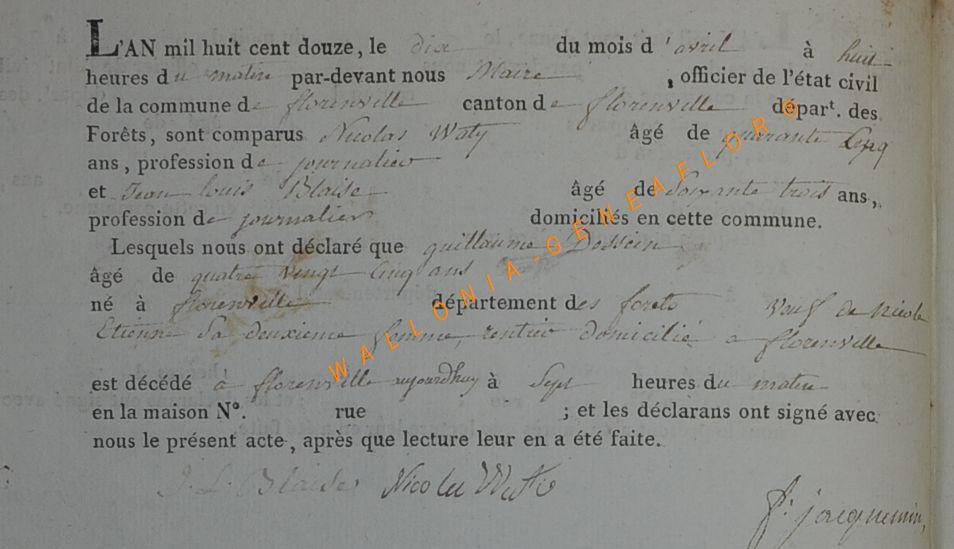 L'AN mil huit cent douze, le dix du mois d'avril à huit
heures du matin par-devant nous Maire , officier de l'état civil
de la commune de florenville canton de florenville départ. des
Forêts, sont comparus Nicolas Waty âgé de quarante Cinq
ans, profession de journalier
et Jean louis Blaise âgé de Soixante trois ans,
profession de journalier domiciliés en cette commune.
Lesquels nous ont déclaré que guillaume Dossein
âgé de quatre vingt Cinq ans
né à florenville département des forets veuf de Nicole
Etienne Sa deuxieme femme, rentier domicilié a florenville
est décédé à florenville aujourdhuy à Sept heures du matin
en la maison N°. rue ; et les déclarans ont signé avec
nous le présent acte, après que lecture leur en a été faite.
J. L. Blaise Nicolas
jacquemin
WALLONIA-GENEAFLOR ©